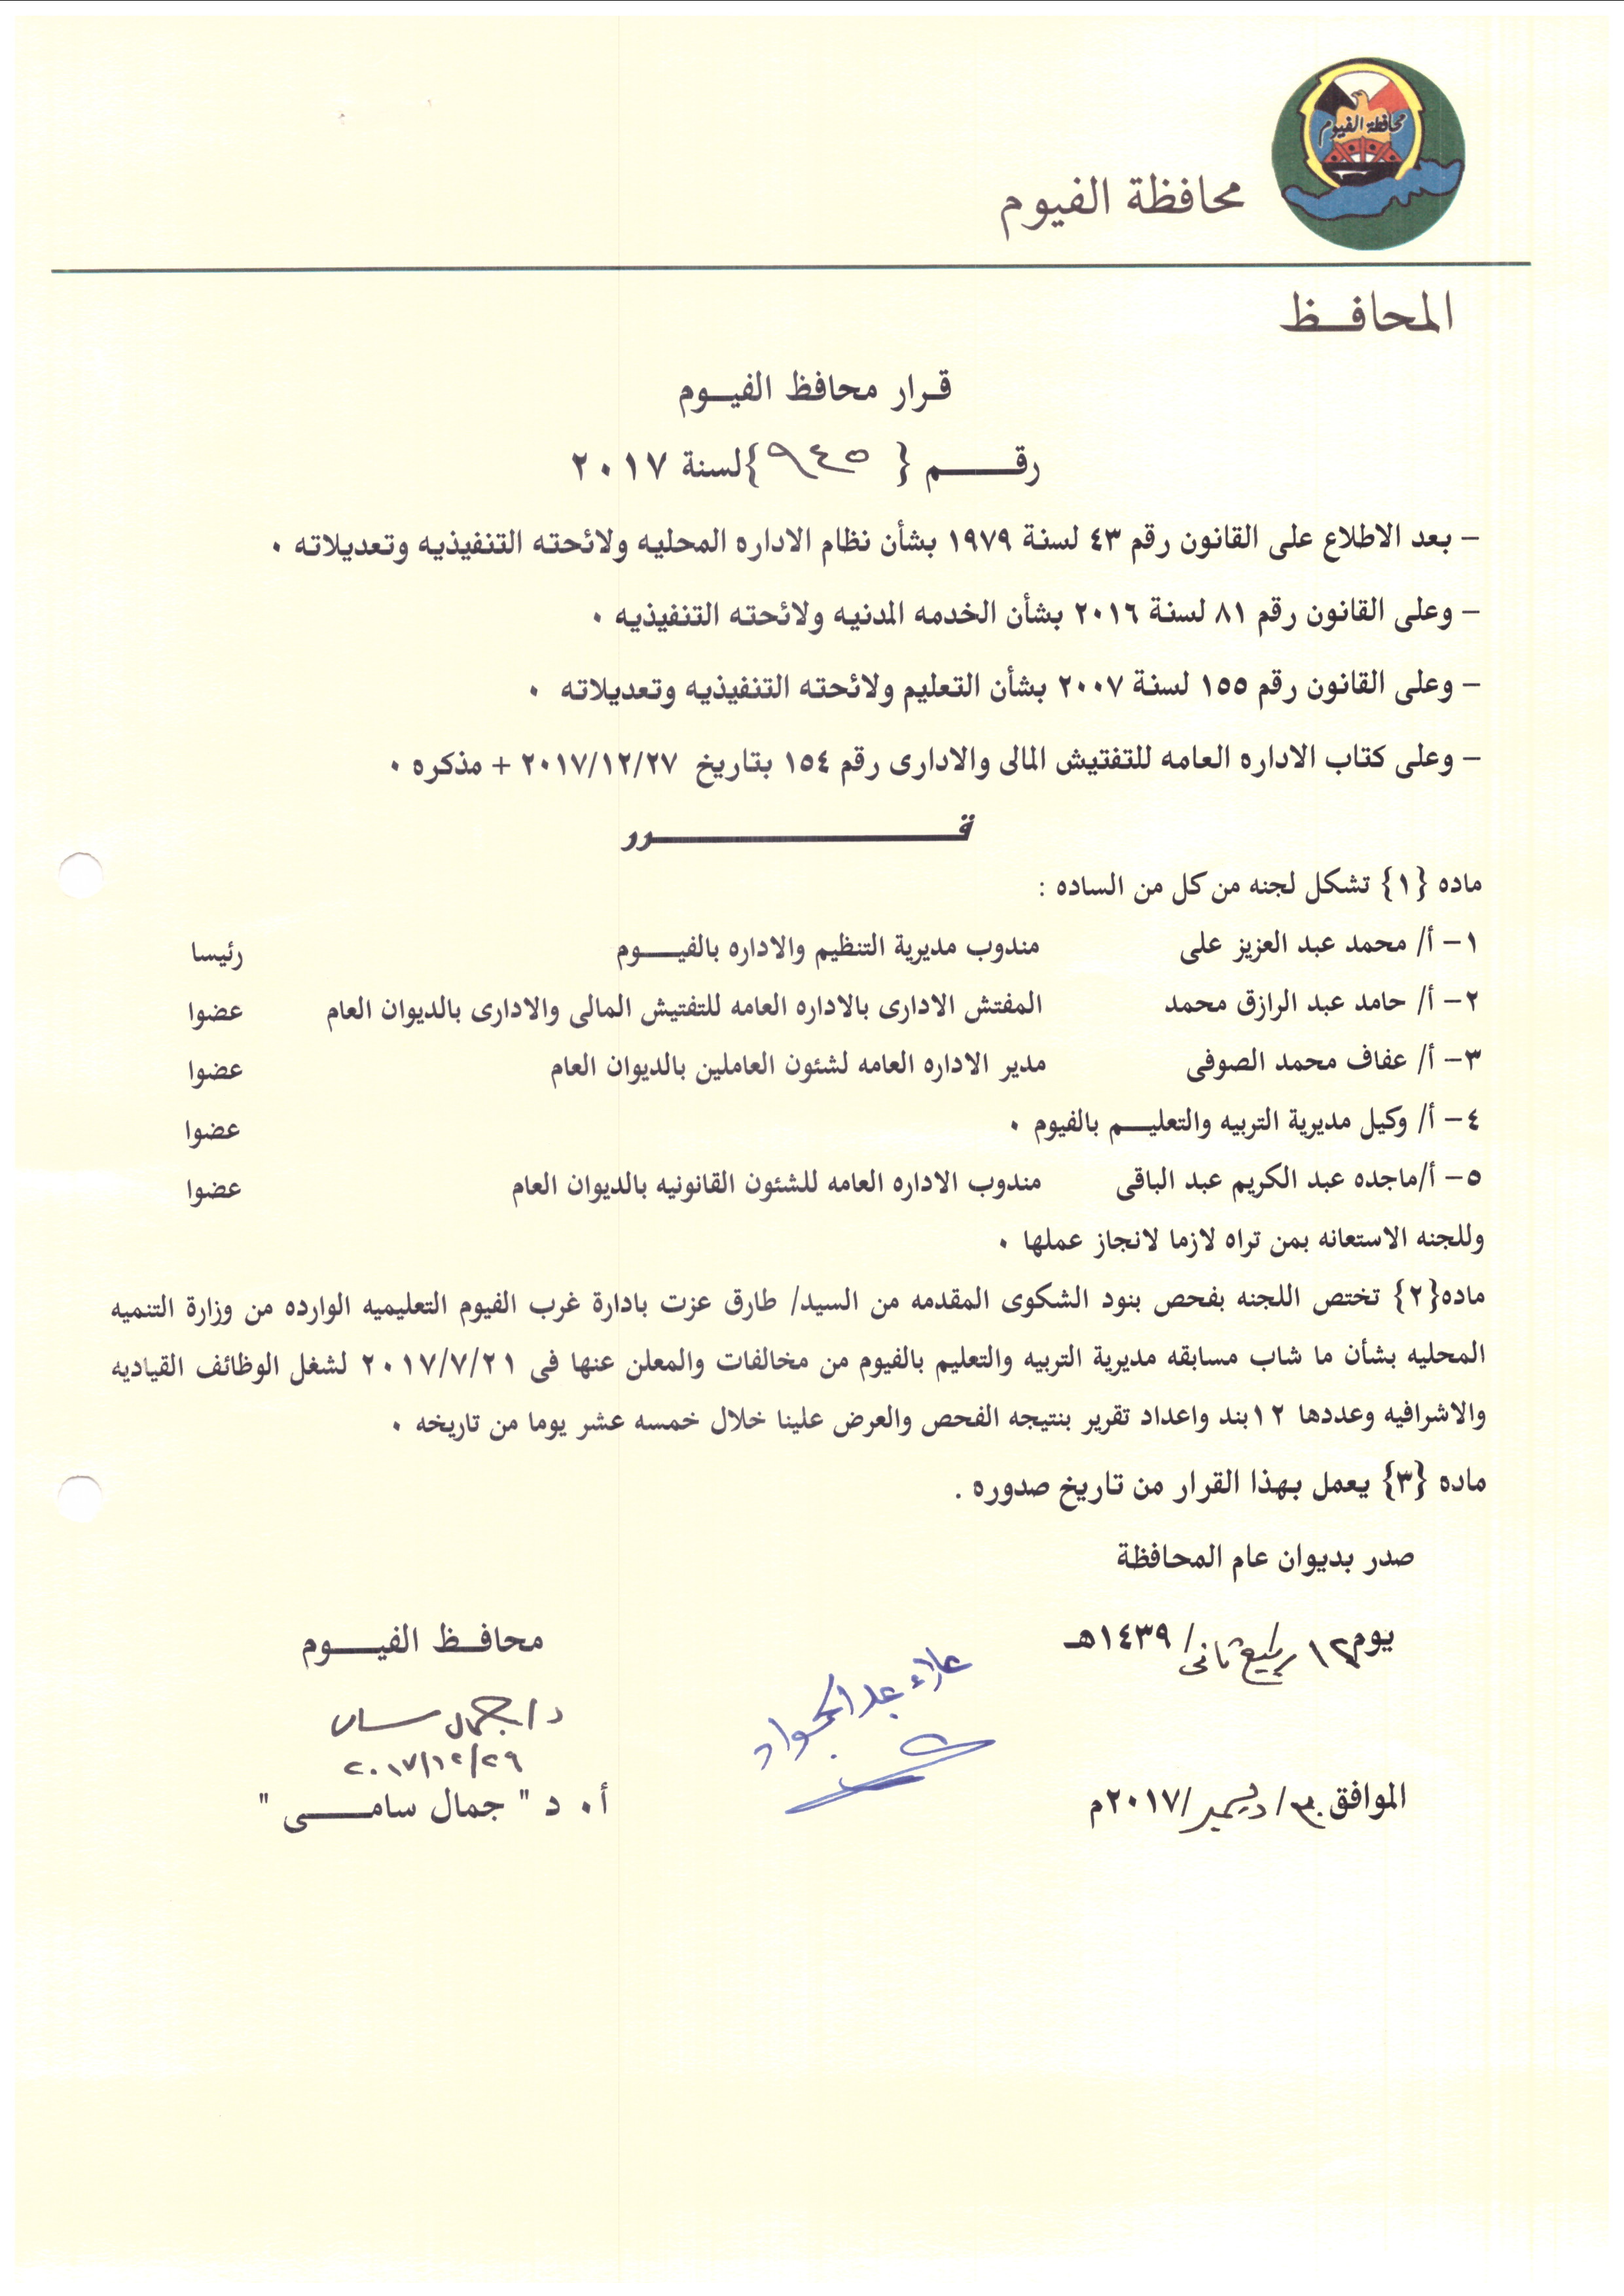 محافظة الفيوم
محافظة الفيوم
المحافــظ
قــرار محافظ الفيــوم
رقــــم { ٩٤٥ }لسنة ٢٠١٧
– بعد الاطلاع على القانون رقم ٤٣ لسنة ١٩٧٩ بشأن نظام الاداره المحليه ولائحته التنفيذيه وتعديلاته ٠
– وعلى القانون رقم ٨١ لسنة ٢٠١٦ بشأن الخدمه المدنيه ولائحته التنفيذيه ٠
– وعلى القانون رقم ١٥٥ لسنة ٢٠٠٧ بشأن التعليم ولائحته التنفيذيه وتعديلاته ٠
– وعلى كتاب الاداره العامه للتفتيش المالى والادارى رقم ١٥٤ بتاريخ ٢٠١٧/١٢/٢٧ + مذكره ٠
قــــــــــــــــرر
ماده {١} تشكل لجنه من كل من الساده :
١– أ/ محمد عبد العزيز على مندوب مديرية التنظيم والاداره بالفيــــوم رئيسا
٢– أ/ حامد عبد الرازق محمد المفتش الادارى بالاداره العامه للتفتيش المالى والادارى بالديوان العام عضوا
٣– أ/ عفاف محمد الصوفى مدير الاداره العامه لشئون العاملين بالديوان العام عضوا
٤– أ/ وكيل مديرية التربيه والتعليـــم بالفيوم ٠ عضوا
٥– أ/ماجده عبد الكريم عبد الباقى مندوب الاداره العامه للشئون القانونيه بالديوان العام عضوا
وللجنه الاستعانه بمن تراه لازما لانجاز عملها ٠
ماده{٢} تختص اللجنه بفحص بنود الشكوى المقدمه من السيد/ طارق عزت بادارة غرب الفيوم التعليميه الوارده من وزارة التنميه
المحليه بشأن ما شاب مسابقه مديرية التربيه والتعليم بالفيوم من مخالفات والمعلن عنها فى ٢٠١٧/٧/٢١ لشغل الوظائف القياديه
والاشرافيه وعددها ١٢بند واعداد تقرير بنتيجه الفحص والعرض علينا خلال خمسه عشر يوما من تاريخه ٠
ماده {٣} يعمل بهذا القرار من تاريخ صدوره .
صدر بديوان عام المحافظة
يوم١٢/ ربيع ثانى/ ١٤٣٩هـ
محافــظ الفيــــوم
علاء عبد الجواد
د/ جمال سامى
٢٠١٧/١٢/٢٩
الموافق ٣٠/ ديسمبر/٢٠١٧م
أ٠ د " جمال سامــــى "